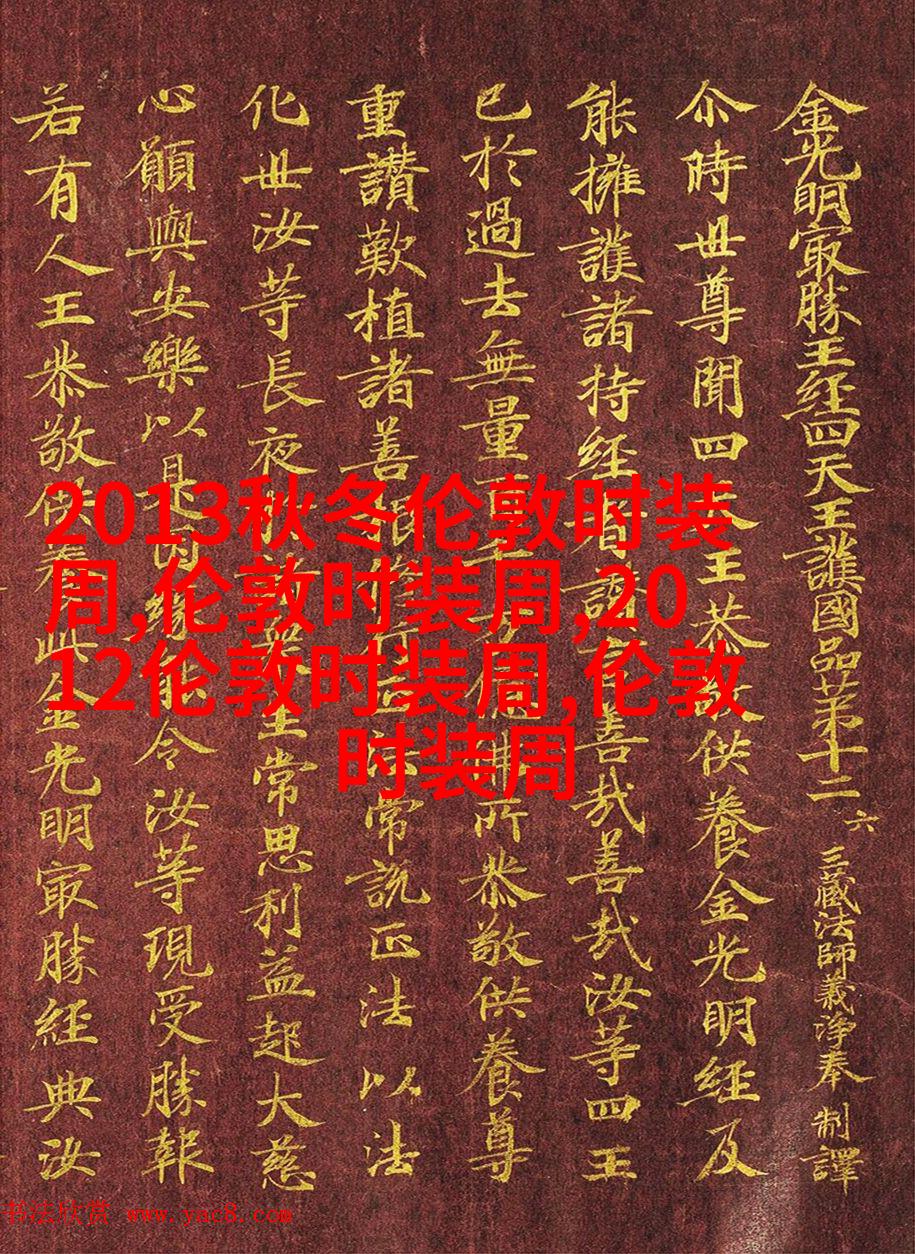 金光明冣勝王経四天王護國品苐十二 六 三蔵法師義浄奉 制譯
尒時世尊聞四王恭供養金光明経及
能擁護諸持経者善哉善哉汝等四王
已於過去無量所恭敬供養尊
重讃歎植諸善常説正法以法
化世汝等長夜生常思利益起大慈
心願與安樂以是因令汝等現受勝報
若有人王恭敬供養此金光明冣勝経典汝
2013秋冬伦敦时装
周,伦敦时装周,20
12伦敦时装周,伦敦
时装周
书法欣赏 www.yac8.com